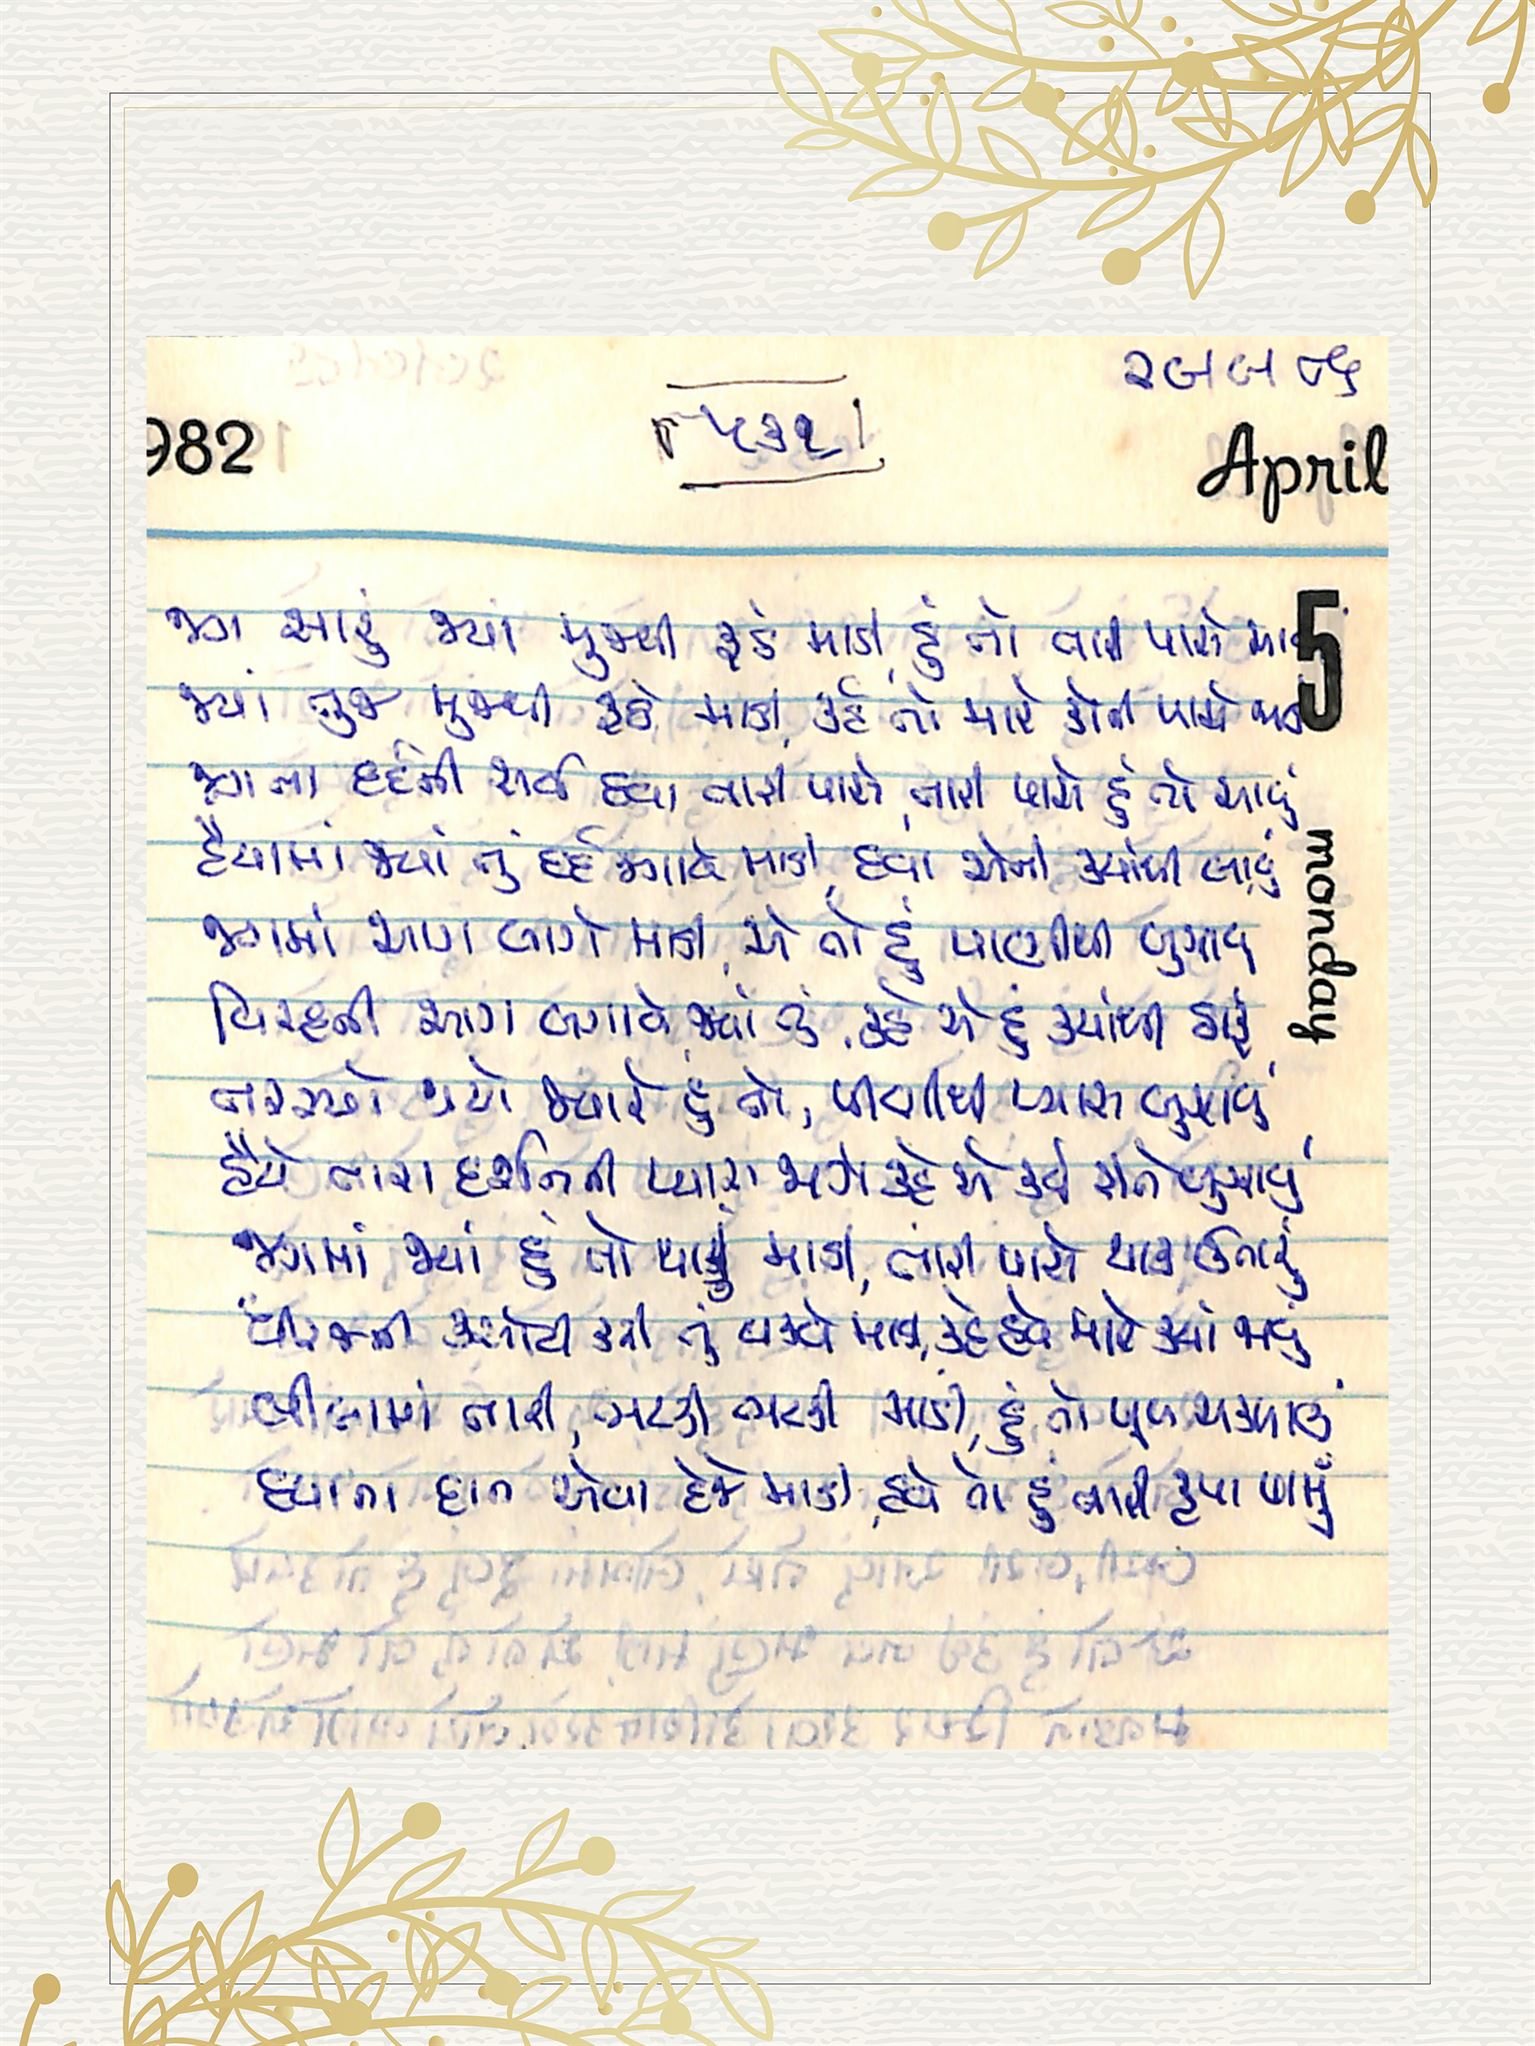 982
૫૩૨
April
5
monday
જગ સારું જ્યાં મુજથી રૂઠે માડી, હું તો તારી પાસે
જ્યાં તુજ મુજથી રૂઠે માડી, કહે તો મારે કોની પાસે
જગના દર્દની સર્વ દવા તારી પાસે, તારી પાસે હું તો આવું
હૈયામાં જ્યાં તું દર્દ જગાવે માડી, દવા એની ક્યાંથી લાવું
જગમાં આગ લાગે માડી, એ તો હું પાણીથી બુઝાવું
વિરહની આગ લગાવે જ્યાં તું, કહે એ હું ક્યાંથી ઠારું
તરસ્યો થયો જ્યારે હું તો, પાણીથી પ્યાસ બુઝાવું
હૈયે તારા દર્શનની પ્યાસ જાગે કહે એ કઈ રીતે બુઝાવું
જગમાં જ્યાં હું તો થાકું માડી, તારી પાસે થાક ઉતારું
ધીરજની કસોટી કરી તું થકવે માડી, કહે હવે મારે ક્યાં જાવું
લીલામાં તારી, ભટકી ભટકી માડી, હું તો ખૂબ અકળાઉં
દયાના દાન એવા દેજે માડી, હવે તો હું તારી કૃપા પામું